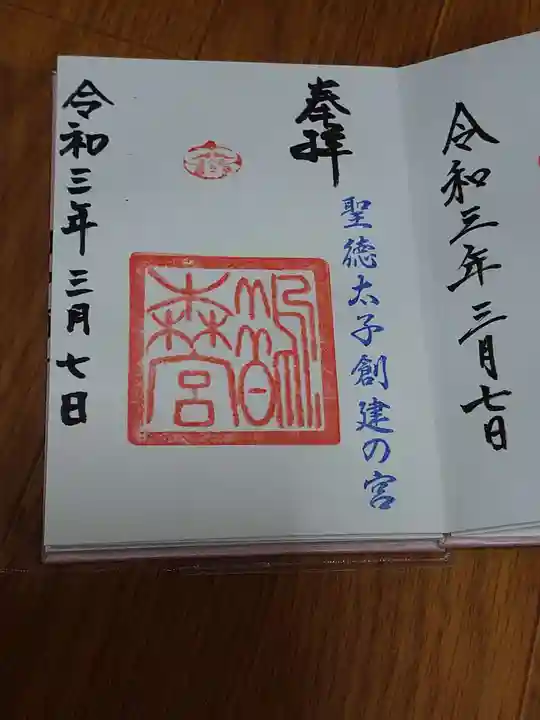 令和三年三月七日
奉拝
聖徳太子創建の宮
鵲
森宮
令和三年三月七日